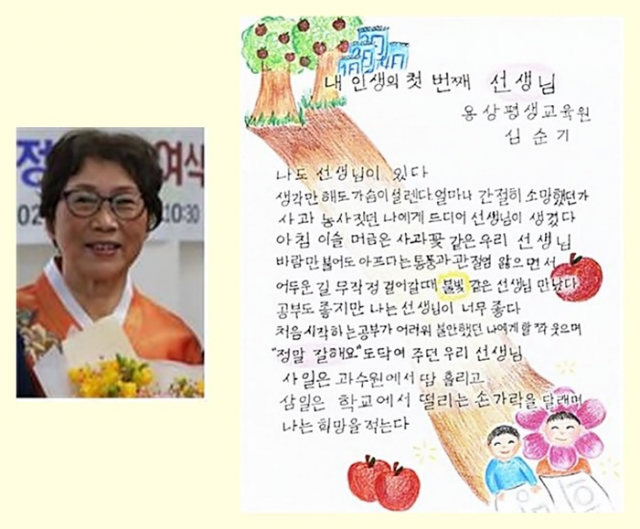 정
여식
02
10:30
내 인생의 첫 번째 선생님
용상평생교육원
심순기
나도 선생님이 있다
생각만 해도 가슴이 설렌다. 얼마나 간절히 소망했던가
사과 농사 짓던 나에게 드디어 선생님이 생겼다
아침 이슬 머금은 사과꽃 같은 우리 선생님
바람만 불어도 아프다는 통풍과 관절염 앓으면서
어두운 길 무작정 걸어갈때 불빛 같은 선생님 만났다
공부도 좋지만 나는 선생님이 너무 좋다
처음 시작하는 공부가 어려워 불안했던 나에게 활짝 웃으며
"정말 잘해요" 또닥여 주던 우리 선생님
사일은 과수원에서 땀 흘리고
삼일은 학교에서 떨리는 손가락을 달래며
나는 희망을 적는다